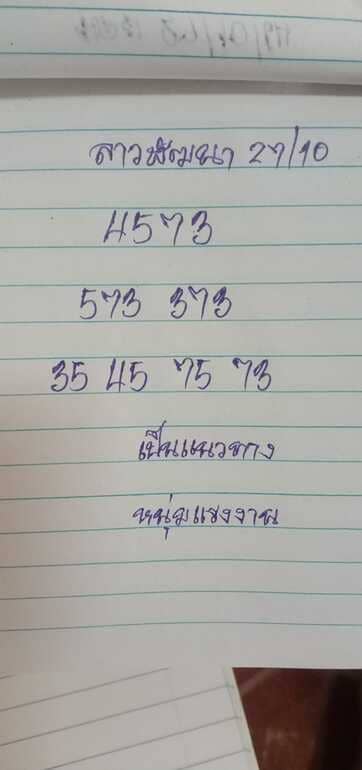 ลาวพัฒนา 27/10
4573
573 373
35 45 75 73
เป็นแนวทาง
หนุ่มแรงงาน